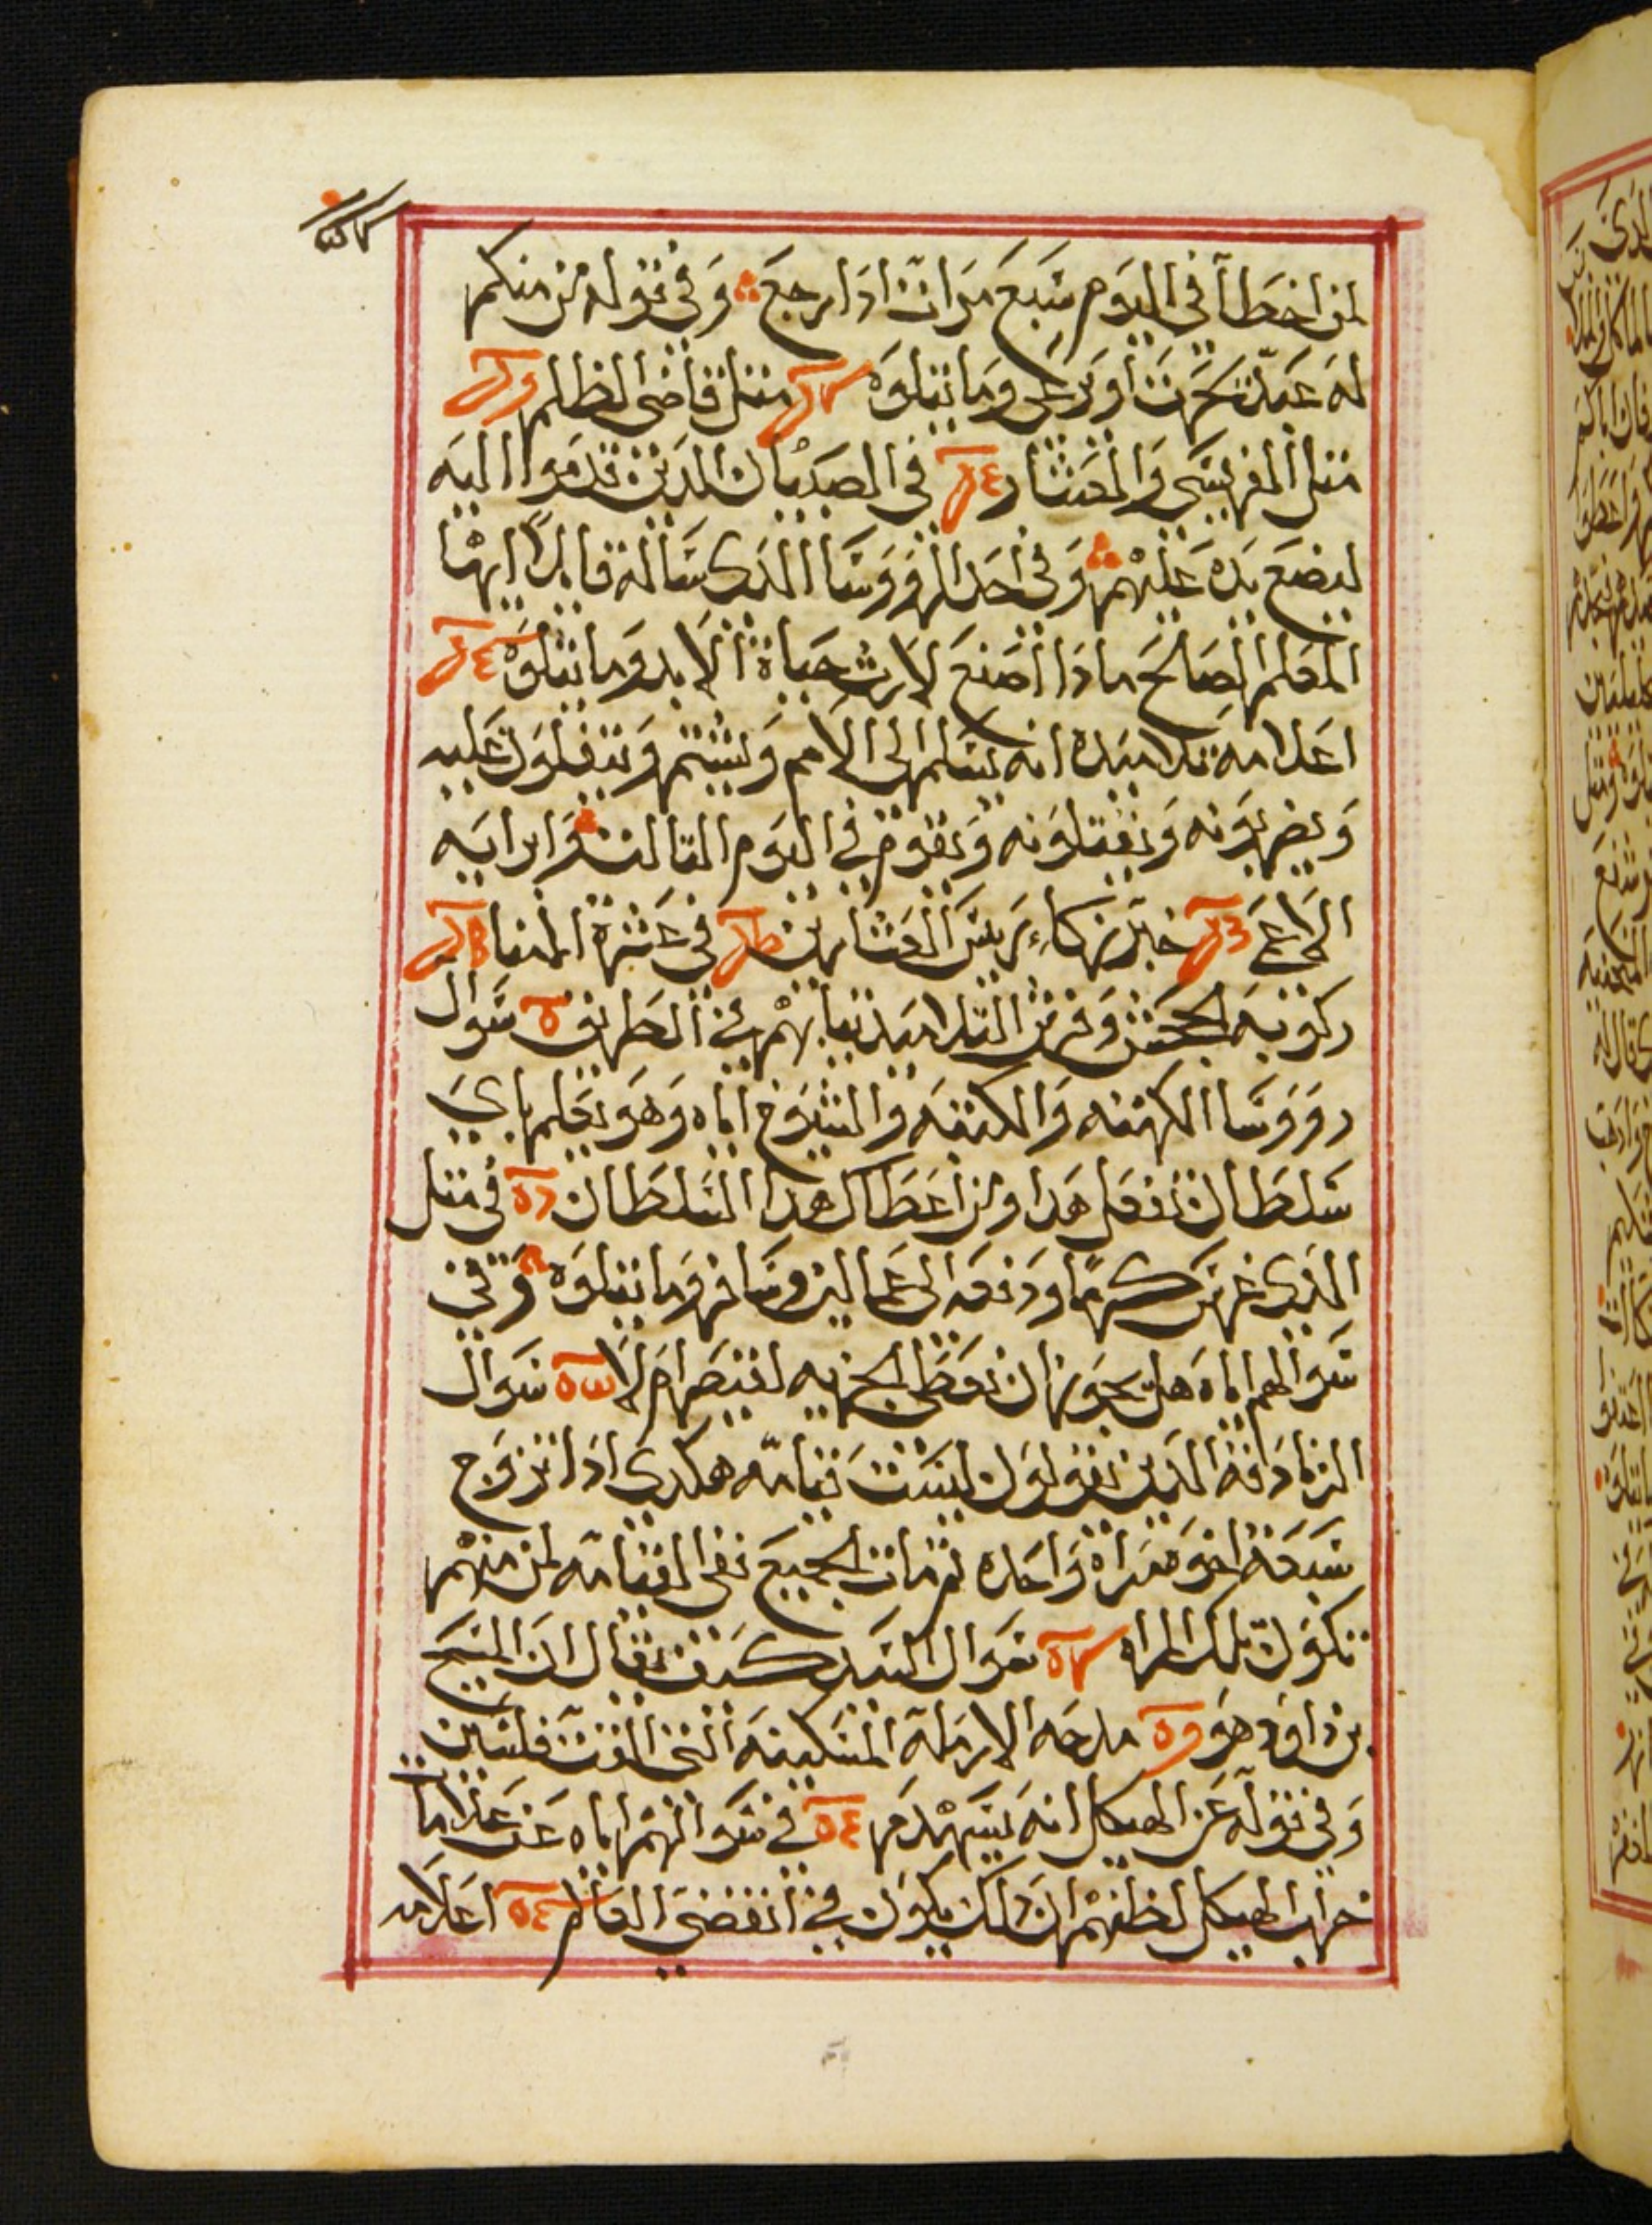 لمن اخطا في اليوم سبع مرات اذا رجع وفي قوله من منكم
له عبد يحرث او يرعى وما يتلوه مثل قاضي الظلم
مثل الفريسي والعشار في الصبيان الذين قدموا اليه
ليضع يده عليهم وفي احد الرووسا الذي ساله قايلا ايها
المعلم الصالح ماذا اصنع لارث حياة الابد وما يتلوه
اعلامه تلاميذه انه يسلم الى الامم ويشتم ويتفلون عليه
ويضربونه ويقتلونه ويقوم في اليوم الثالث وابرايه
الاعمى خبر زكاء ريس العشارين في عشرة الامنا
ركوبه الجحش وفرش التلاميذ ثيابهم في الطريق سوال
رووسا الكهنه والكتبه والشيوخ اياه وهو يعلم باي
سلطان تفعل هذا ومن اعطاك هذا السلطان في مثل
الذي غرس كرما ودفعه الى عمالين وسافر وما يتلوه وفي
سوالهم اياه هل يجوز ان نعطي الجزيه لقيصر ام لا سوال
الزنادقه الذين يقولون ليست قيامه هكدى اذا تزوج
سبعة اخوه مراة واحده ثم مات الجميع ففي القيامه لمن منهم
تكون تلك المراه سوال السيد كيف يقال ان المسيح
بن داوود هو مدحه الارملة المسكينه التي القت فلسين
وفي قوله عن الهيكل انه سيهدم في سوالهم اياه عن علامات
خراب الهيكل لظنهم ان ذلك يكون في انقضى العالم اعلامه